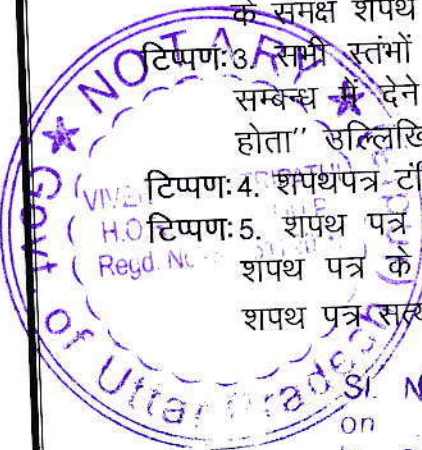 के समक्ष शपथ
टिप्पण: 3. सभी स्तंभों
सम्बन्ध में देने
होता" उल्लिखि
टिप्पण: 4. शपथपत्र टंि
टिप्पण: 5. शपथ पत्र
शपथ पत्र के
शपथ पत्र सत्य
NOTARY
Govt of Uttar Pradesh
Regd. No
Sl. N
on